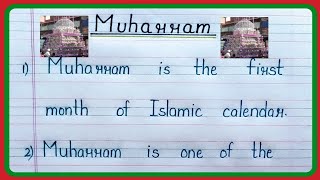 Muharram
1) Muharram is the first
month of Islamic calendar.
2) Muharram is one of the